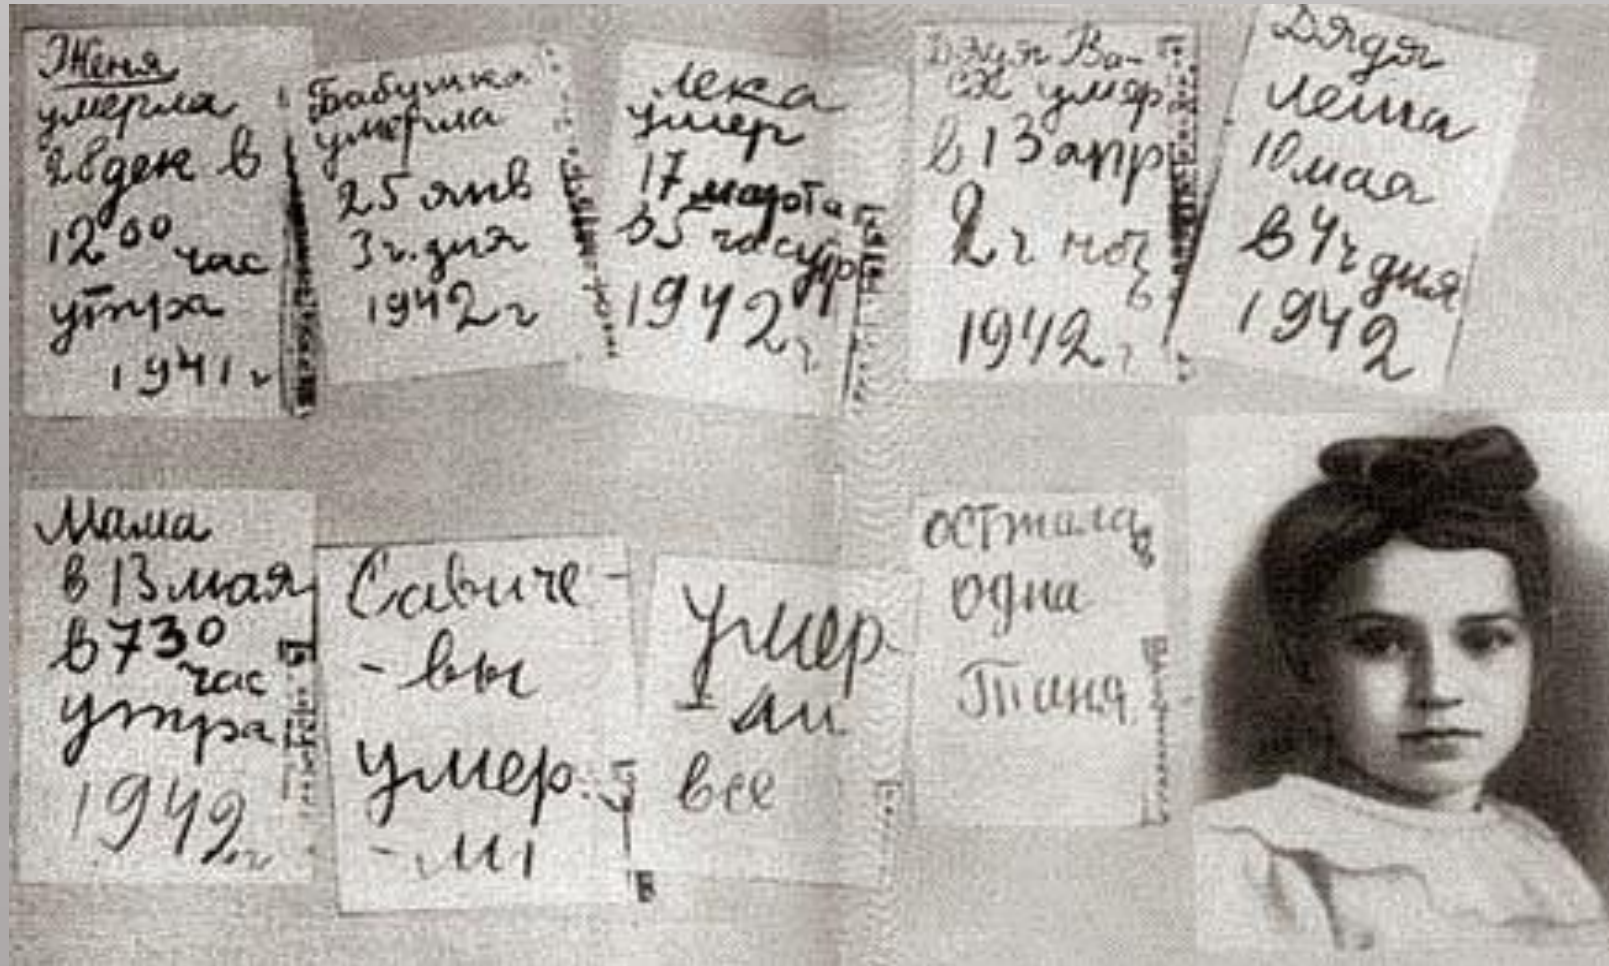 Женя
умерла
28 дек в
12 00 час
утра
1941 г
Бабушка
умерла
25 янв
3 ч. дня
1942 г
Лека
умер
17 марта
в 5 час утр
1942 г
Дядя Ва-
ся умер
в 13 апр
2 ч ноч
ь
1942 г
Дядя
Леша
10 мая
в 4 ч дня
1942
Мама
в 13 мая
в 7 30
час
утра
1942 г
Савиче-
- вы
умер
- ли
Умер
- ли
все
осталась
одна
Таня